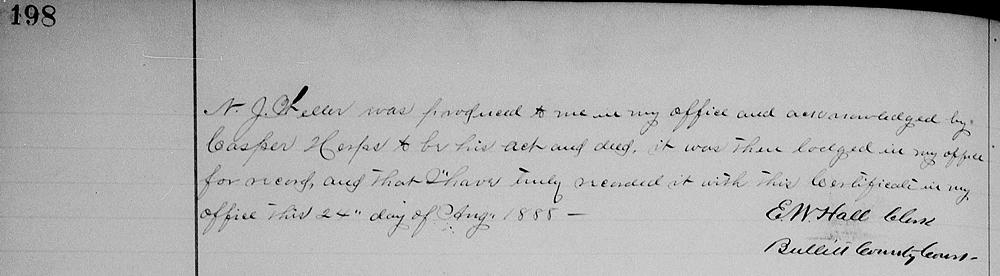 198
N. J. Weller was produced to me in my office and acknowledged by
Casper Herps to be his act and deed, it was then lodged in my office
for record, and that I have truly recorded it with this Certificate in my
office this 24" day of Aug. 1888 —
E. W. Hall Clerk
Bullitt County Court-